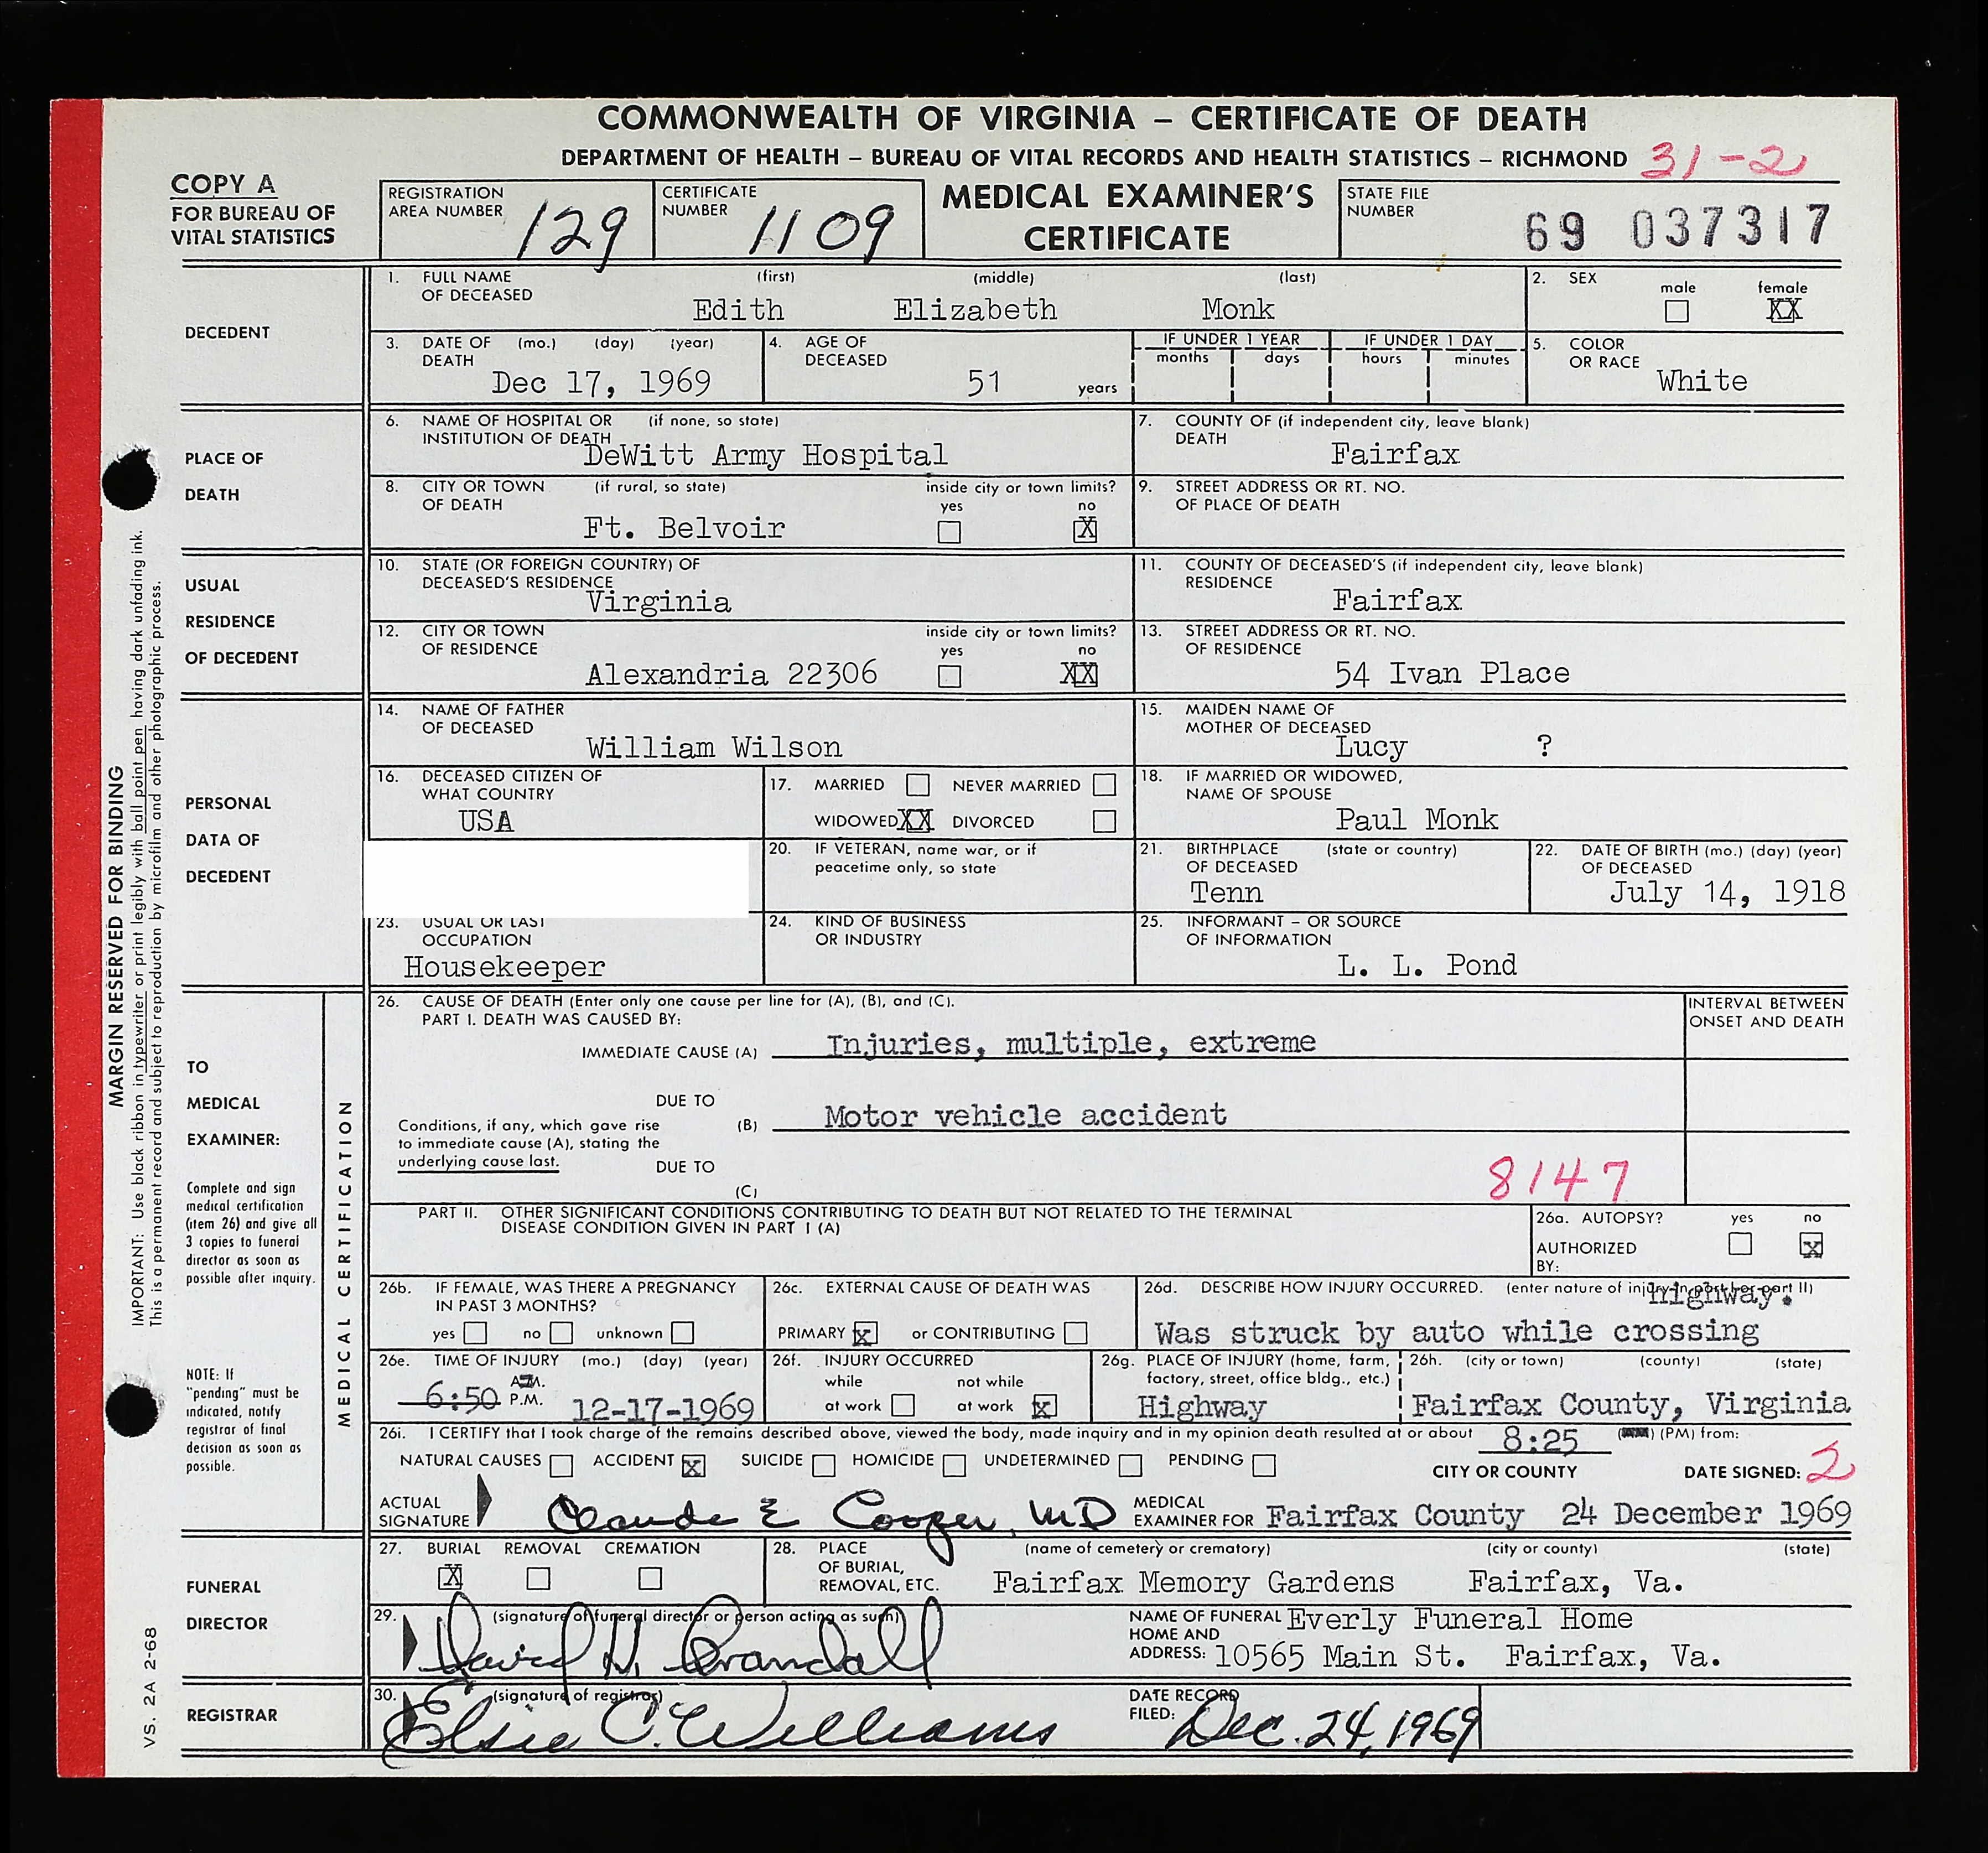 COMMONWEALTH OF VIRGINIA – CERTIFICATE OF DEATH
DEPARTMENT OF HEALTH – BUREAU OF VITAL RECORDS AND HEALTH STATISTICS – RICHMOND 31-2
COPY A
FOR BUREAU OF
VITAL STATISTICS
REGISTRATION
AREA NUMBER 129
CERTIFICATE
NUMBER 1109
MEDICAL EXAMINER'S
CERTIFICATE
STATE FILE
NUMBER 69 037317
DECEDENT
1. FULL NAME (first) (middle) (last)
OF DECEASED
Edith Elizabeth Monk
2. SEX male female
XX
3. DATE OF (mo.) (day) (year)
DEATH
Dec 17, 1969
4. AGE OF
DECEASED
51 years
IF UNDER 1 YEAR
months days
IF UNDER 1 DAY
hours minutes
5. COLOR
OR RACE
White
PLACE OF
DEATH
6. NAME OF HOSPITAL OR (if none, so state)
INSTITUTION OF DEATH
DeWitt Army Hospital
7. COUNTY OF (if independent city, leave blank)
DEATH
Fairfax
8. CITY OR TOWN (if rural, so state) inside city or town limits?
OF DEATH yes no
Ft. Belvoir X
9. STREET ADDRESS OR RT. NO.
OF PLACE OF DEATH
USUAL
RESIDENCE
OF DECEDENT
10. STATE (OR FOREIGN COUNTRY) OF
DECEASED'S RESIDENCE
Virginia
11. COUNTY OF DECEASED'S (if independent city, leave blank)
RESIDENCE
Fairfax
12. CITY OR TOWN inside city or town limits?
OF RESIDENCE yes no
Alexandria 22306 XX
13. STREET ADDRESS OR RT. NO.
OF RESIDENCE
54 Ivan Place
PERSONAL
DATA OF
DECEDENT
14. NAME OF FATHER
OF DECEASED
William Wilson
15. MAIDEN NAME OF
MOTHER OF DECEASED
Lucy ?
16. DECEASED CITIZEN OF
WHAT COUNTRY
USA
17. MARRIED NEVER MARRIED
WIDOWED XX DIVORCED
18. IF MARRIED OR WIDOWED,
NAME OF SPOUSE
Paul Monk
20. IF VETERAN, name war, or if
peacetime only, so state
21. BIRTHPLACE (state or country)
OF DECEASED
Tenn
22. DATE OF BIRTH (mo.) (day) (year)
OF DECEASED
July 14, 1918
23. USUAL OR LAST
OCCUPATION
Housekeeper
24. KIND OF BUSINESS
OR INDUSTRY
25. INFORMANT – OR SOURCE
OF INFORMATION
L. L. Pond
TO
MEDICAL
EXAMINER:
Complete and sign
medical certification
(item 26) and give all
3 copies to funeral
director as soon as
possible after inquiry.
NOTE: If
"pending" must be
indicated, notify
registrar of final
decision as soon as
possible.
MEDICAL CERTIFICATION
26. CAUSE OF DEATH (Enter only one cause per line for (A), (B), and (C).
PART I. DEATH WAS CAUSED BY:
INTERVAL BETWEEN
ONSET AND DEATH
IMMEDIATE CAUSE (A) Injuries, multiple, extreme
DUE TO
(B) Motor vehicle accident
Conditions, if any, which gave rise
to immediate cause (A), stating the
underlying cause last.
DUE TO
(C)
8147
PART II. OTHER SIGNIFICANT CONDITIONS CONTRIBUTING TO DEATH BUT NOT RELATED TO THE TERMINAL
DISEASE CONDITION GIVEN IN PART I (A)
26a. AUTOPSY? yes no
AUTHORIZED x
BY:
26b. IF FEMALE, WAS THERE A PREGNANCY
IN PAST 3 MONTHS?
yes no unknown
26c. EXTERNAL CAUSE OF DEATH WAS
PRIMARY x or CONTRIBUTING
26d. DESCRIBE HOW INJURY OCCURRED. (enter nature of injury in part I or part II)
highway.
Was struck by auto while crossing
26e. TIME OF INJURY (mo.) (day) (year)
A.M.
6:50 P.M. 12-17-1969
26f. INJURY OCCURRED
while not while
at work at work x
26g. PLACE OF INJURY (home, farm,
factory, street, office bldg., etc.)
Highway
26h. (city or town) (county) (state)
Fairfax County, Virginia
26i. I CERTIFY that I took charge of the remains described above, viewed the body, made inquiry and in my opinion death resulted at or about 8:25 (PM) from:
NATURAL CAUSES ACCIDENT x SUICIDE HOMICIDE UNDETERMINED PENDING
CITY OR COUNTY DATE SIGNED: 2
ACTUAL
SIGNATURE Claude E Cooper, MD
MEDICAL
EXAMINER FOR Fairfax County 24 December 1969
FUNERAL
DIRECTOR
27. BURIAL REMOVAL CREMATION
X
28. PLACE (name of cemetery or crematory) (city or county) (state)
OF BURIAL,
REMOVAL, ETC. Fairfax Memory Gardens Fairfax, Va.
29. (signature of funeral director or person acting as such)
David H. Crandall
NAME OF FUNERAL Everly Funeral Home
HOME AND
ADDRESS: 10565 Main St. Fairfax, Va.
REGISTRAR
30. (signature of registrar)
Elsie C. Williams
DATE RECORD
FILED: Dec. 24, 1969
MARGIN RESERVED FOR BINDING
IMPORTANT: Use black ribbon in typewriter or print legibly with ball point pen having dark unfading ink.
This is a permanent record and subject to reproduction by microfilm and other photographic process.
VS. 2A 2-68